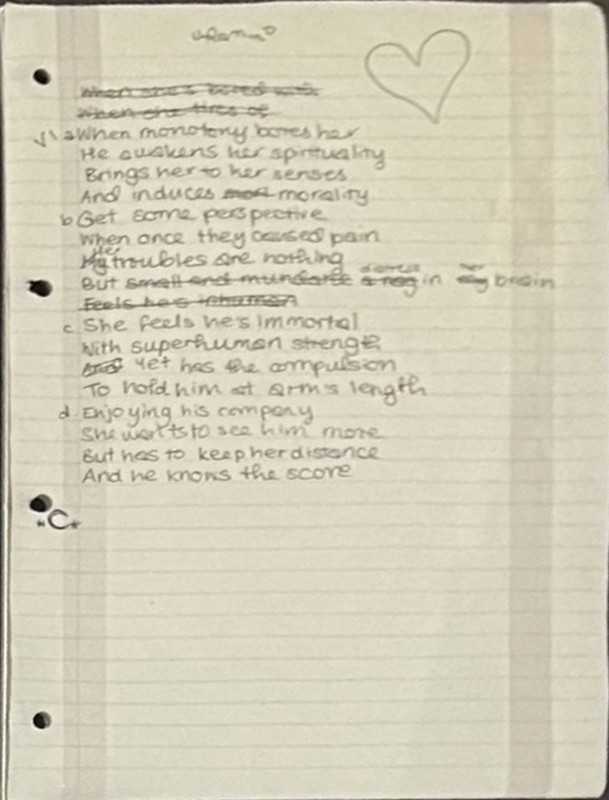 When she's bored with
When she tires of
V1 a When monotony bores her
He awakens her spirituality
Brings her to her senses
And induces morality
b Get some perspective
When once they caused pain
Her
My troubles are nothing
But small and mundane in brain
Feels he's inhuman
c She feels he's immortal
With superhuman strength
And Yet has the compulsion
To hold him at arm's length
d Enjoying his company
She wants to see him more
But has to keep her distance
And he knows the score
"C"